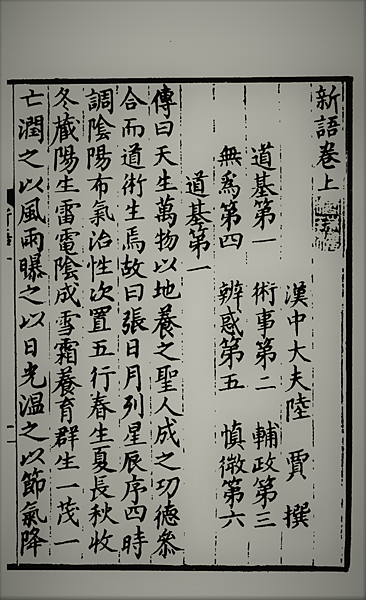 新語卷上
漢中大夫陸賈撰
道基第一 術事第二 輔政第三
無爲第四 辨惑第五 慎微第六
道基第一
傳曰天生萬物以地養之聖人成之功德叅
合而道術生焉故曰張日月列星辰序四時
調陰陽布氣治性次置五行春生夏長秋收
冬藏陽生雷電陰成雪霜養育群生一茂一
亡潤之以風雨曝之以日光温之以節氣降